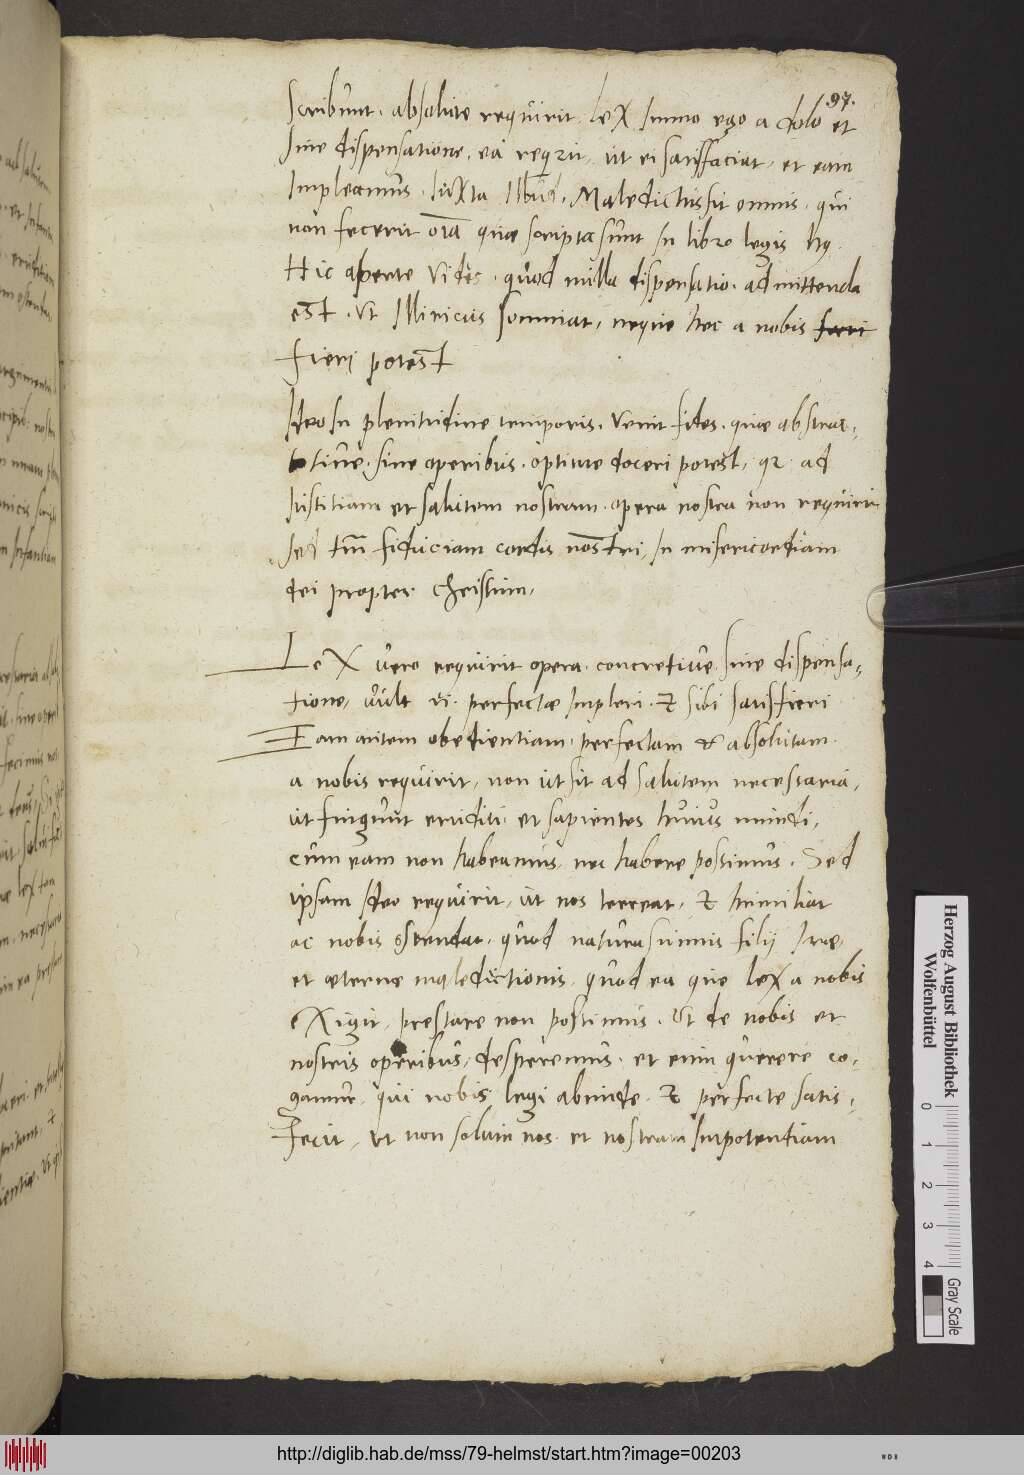 97.
scribunt. absolute requirit Lex Immo ego a dolo et
sine dispensatione, ea reqrit, ut ei satisfaciat, et eam
Impleamus. Iuxta Illud, Maledictus sit omnis, qui
non fecerit oīa quae scripta sunt In libro legis
Hic aperte Vides, quod nulla dispensatio. admittenda
est, Ut Illiricus somniat, neque hec a nobis
fieri potest
Ideo In plenitudine temporis, venit fides, quae abstrac-
tiue, sine operibus, optime doceri potest, qr ad
Iustitiam et salutem nostram, opera nostra non requirit
sed tm̄ fiduciam cordis nostri, In misericordiam
dei propter Christum,
Lex vero requirit opera concretiue sine dispensa-
tione, vult perfectae Impleri. & sibi satisfieri
Eam autem obedientiam, perfectam & absolutam
a nobis requirit, non ut sit ad salutem necessaria,
ut fingunt eruditi et sapientes huius mundi,
cum eam non habeamus nec habere possimus. Sed
ipsam Ideo requirit, ut nos terreat, & humiliat
ac nobis ostendat, quod natura sumus filij Irae,
et aeternae maledictionis, quod ea que Lex a nobis
exigit, prestare non possimus. Ut de nobis et
nostris operibus, desperemus, et eum querere co-
gamur, qui nobis legi abunde & perfecte satis-
fecit, ut non solum nos et nostram Impotentiam
Herzog August Bibliothek
Wolfenbüttel
0 1 2 3 4
Gray Scale
http://diglib.hab.de/mss/79-helmst/start.htm?image=00203